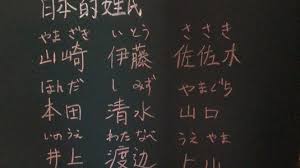 日本的姓氏
やまざき いとう ささき
山崎 伊藤 佐佐木
ほんだ しみず やまぐち
本田 清水 山口
いのうえ わたなべ うえやま
井上 渡辺 上山